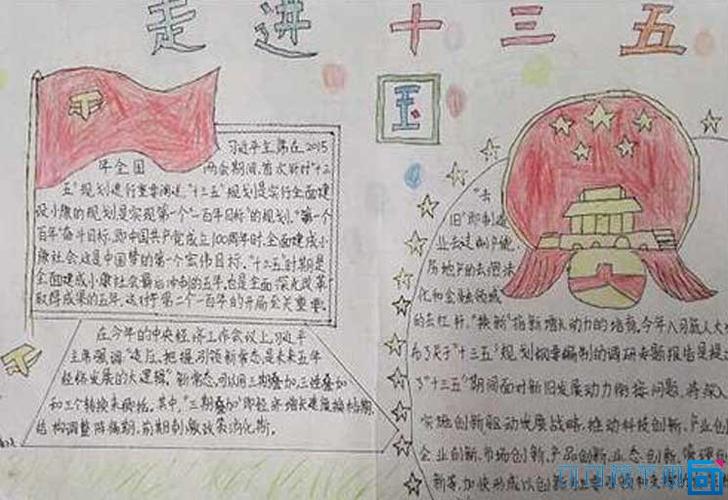 走进十三五
习近平主席在2015
年全国 两会期间,首次针对"十三
五"规划进行重要阐述,"十三五"规划是实行全面建
设小康的规划是实现第一个"一百年目标"的规划,"第一个
百年"奋斗目标,即中国共产党成立100周年时,全面建成小
康社会这是中国梦的第一个宏伟目标,"十三五"时期是
全面建成小康社会最后冲刺的五年,也是全面深化改革
取得成果的五年,这对于第二个一百年的开局至关重要。
在今年的中央经济工作会议上,习近平
主席强调,
经济发展的大逻辑"新常态,可以用三期叠加,三性叠加
和三个转换来概括。其中,"三期叠加"即经济增长速度换档期,
结构调整阵痛期,前期刺激政策消化期。
"去
旧"即制造
业去过剩产能
房地产的去泡沫
化和金融领域
的去杠杆,"换新"指新增长动力的培育,今年八月
了"十三五"期间面对新旧发展动力衔接问题,将深
实施创新驱动发展战略,推动科技创新,产业创
企业创新,市场创新,产品创新,业态创新,管理创
新等,加快形成以创新